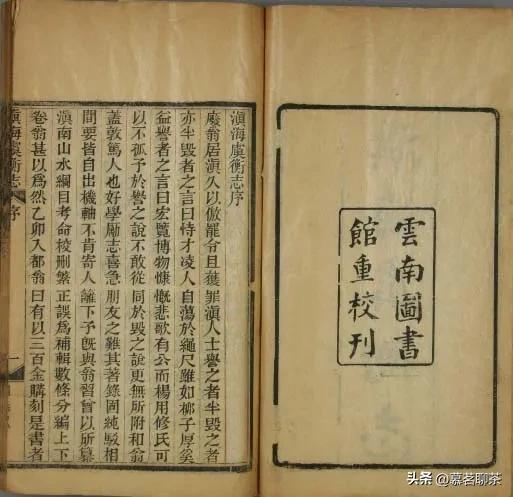 雲南圖書
館重校刊
滇海虞衡志序
廢翁居滇久以倣罷令且獲罪滇人士譽之者半毀之者
亦半毀者之言曰恃才凌人自蕩於繩尺雖如柳子厚奚
益譽者之言曰宏覽博物慷慨悲歌有公而楊用修氏可
以不孤予於譽之說不敢從同於毀之說更無所附和翁
蓋敦篤人也好學厲志喜急朋友之難其著錄固純駁相
間要皆自出機軸不肯寄人籬下予旣與翁習曾以所纂
滇南山水綱目考命校刪繁正誤爲補輯數條分編上下
卷翁甚以爲然乙卯入都翁曰有以三百金購刻是書者
滇海虞衡志 序 一
头条 @慕茗聊茶